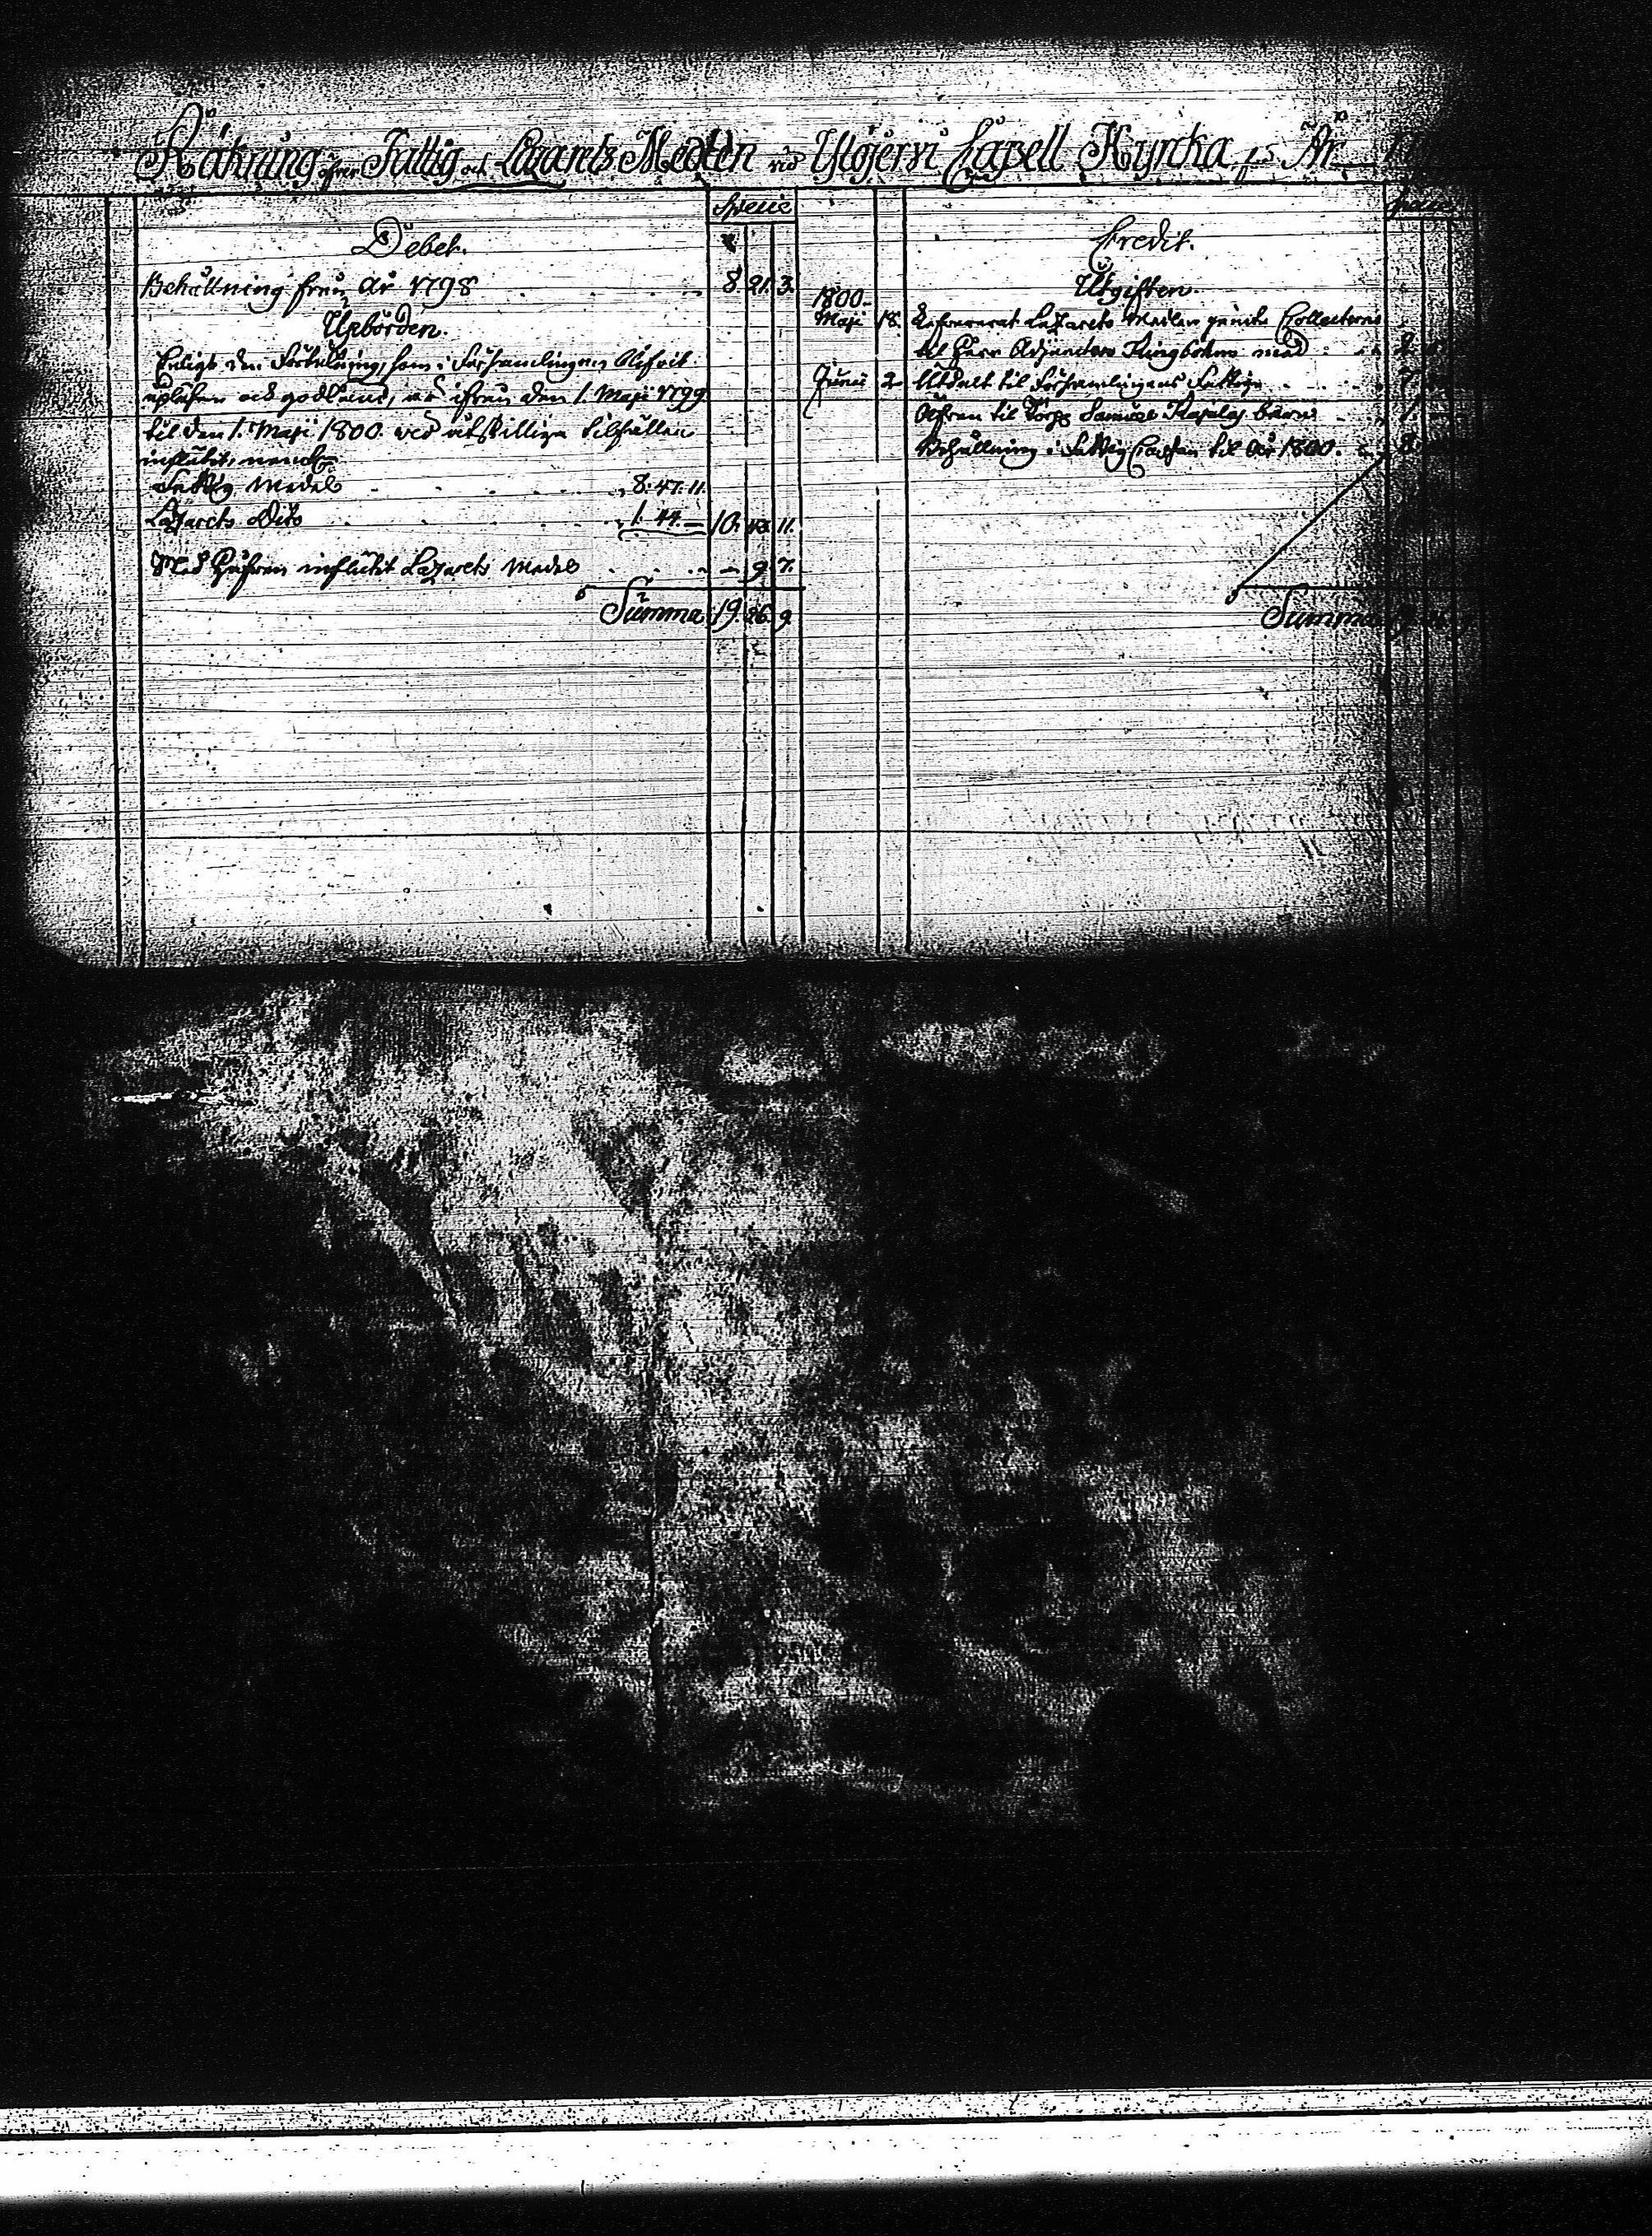 Räkning öfver Fattig och Lazarets Medlen vid Ylöjervi Capell Kyrka för År
Specie
Debet.
Behållning från År 1798 8. 21. 3.
Upbörden.
Enligt den Förtekning, som i Församlingen blifvit
upläsen och godkänd, är ifrån den 1. Maji 1799
til den 1. Maji 1800. wid åtskilliga tilfällen
influtit, nemligen
Fattig Medel 8. 47. 11.
Lazarets Dito 1. 44. — 10. 43. 11.
Med Håfven influtit Lazarets Medel — 9. 7.
Summa 19. 26. 9.
Credit.
Utgiften.
1800.
Maji 18. Lazarets Medlen Collecterne
til Herr Adjuncten Kingbohm med 2.
Junii 2 Utdelt til Församlingens Fattige 7.
Äfven til Samuel barn 1.
Behållning i Fattig Cassan til År 1800. 8.
Summa 19.